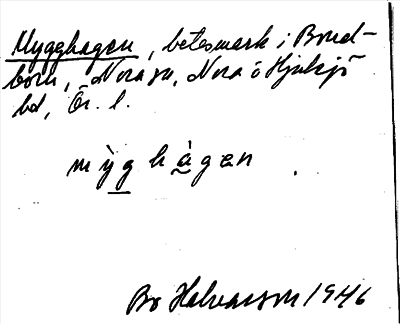 Mygghagen, betesmark i Bred-
born, Nora sn, Nora o Hjulsjö
bd, Ör. l.
mỳg hà̰gen .
Bo Halvarson 1946